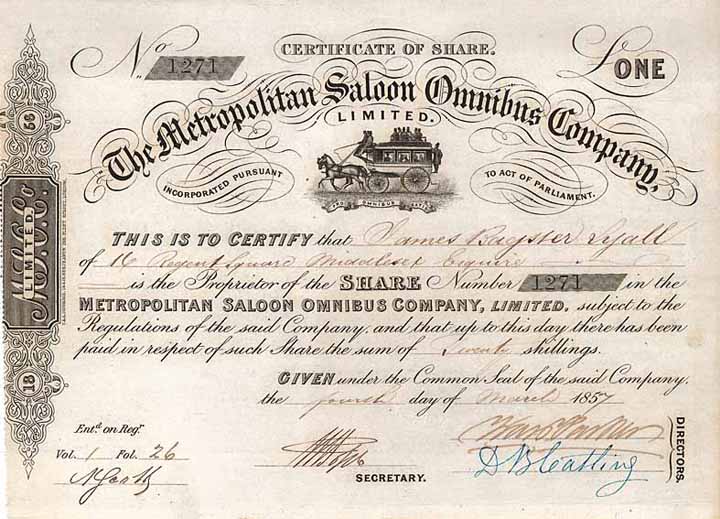 No 1271
CERTIFICATE OF SHARE.
£ONE
The Metropolitan Saloon Omnibus Company,
LIMITED.
INCORPORATED PURSUANT TO ACT OF PARLIAMENT.
PRO OMNIBUS
THIS IS TO CERTIFY that James Bagster Lyall
of 16 Regent Square Middlesex Esquire
is the Proprietor of the SHARE Number 1271 in the
METROPOLITAN SALOON OMNIBUS COMPANY, LIMITED. subject to the
Regulations of the said Company, and that up to this day there has been
paid in respect of such Share the sum of Twenty shillings.
GIVEN under the Common Seal of the said Company,
the fourth day of March 1857
Entd. on Regr.
Vol. 1 Fol. 26
SECRETARY.
DIRECTORS.
56
M.S.O.Co
LIMITED.
18